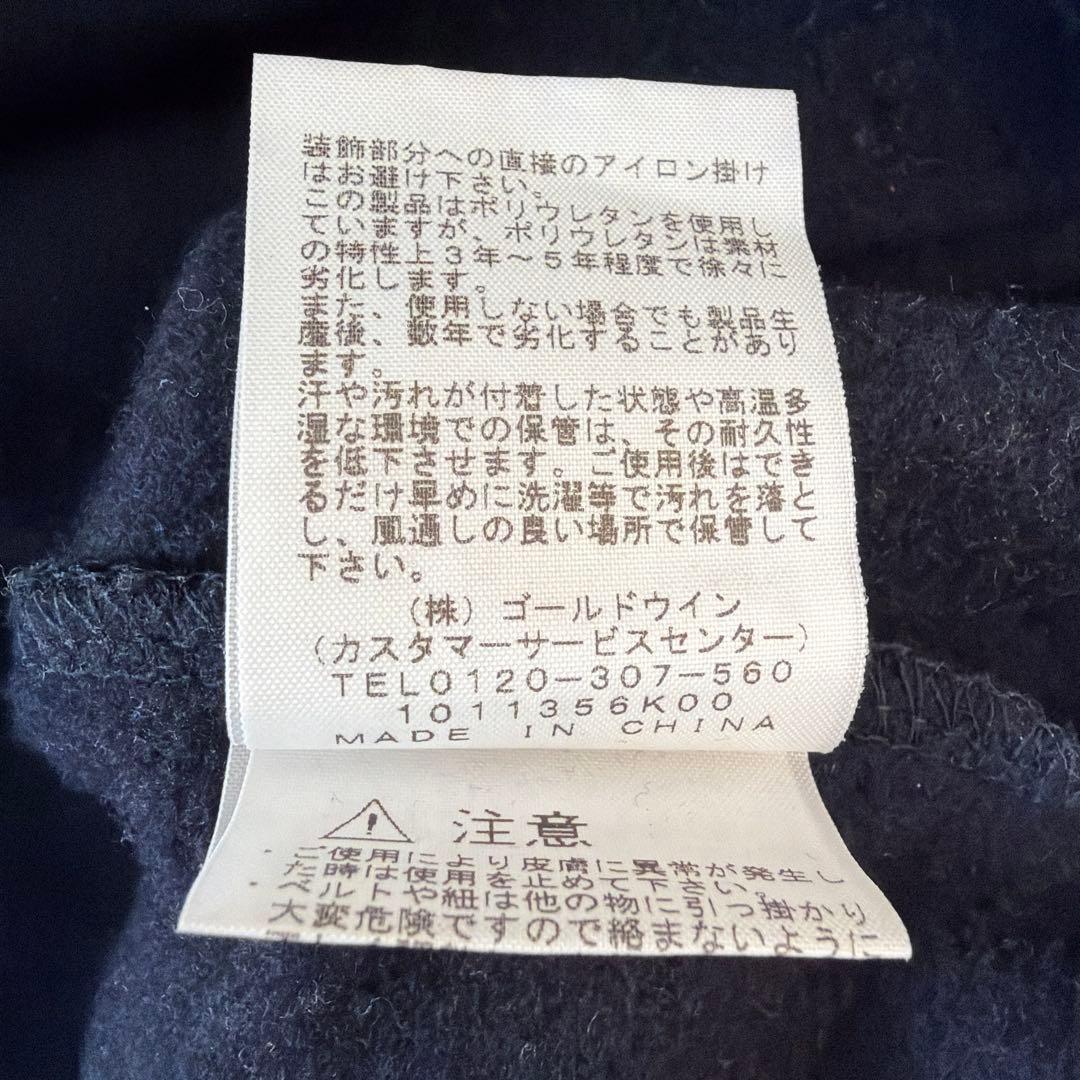 装飾部分への直接のアイロン掛け
はお避け下さい。
この製品はポリウレタンを使用し
ていますが、ポリウレタンは素材
の特性上3年~5年程度で徐々に
劣化します。
また、使用しない場合でも製品生
産後、数年で劣化することがあり
ます。
汗や汚れが付着した状態や高温多
湿な環境での保管は、その耐久性
を低下させます。ご使用後はでき
るだけ早めに洗濯等で汚れを落と
し、風通しの良い場所で保管して
下さい。
(株)ゴールドウイン
(カスタマーサービスセンター)
TEL0120-307-560
1011356K00
MADE IN CHINA
注意
ご使用により皮膚に異常が発生し
た時は使用を止めて下さい。
ベルトや紐は他の物に引っ掛かり
大変危険ですので絡まないように